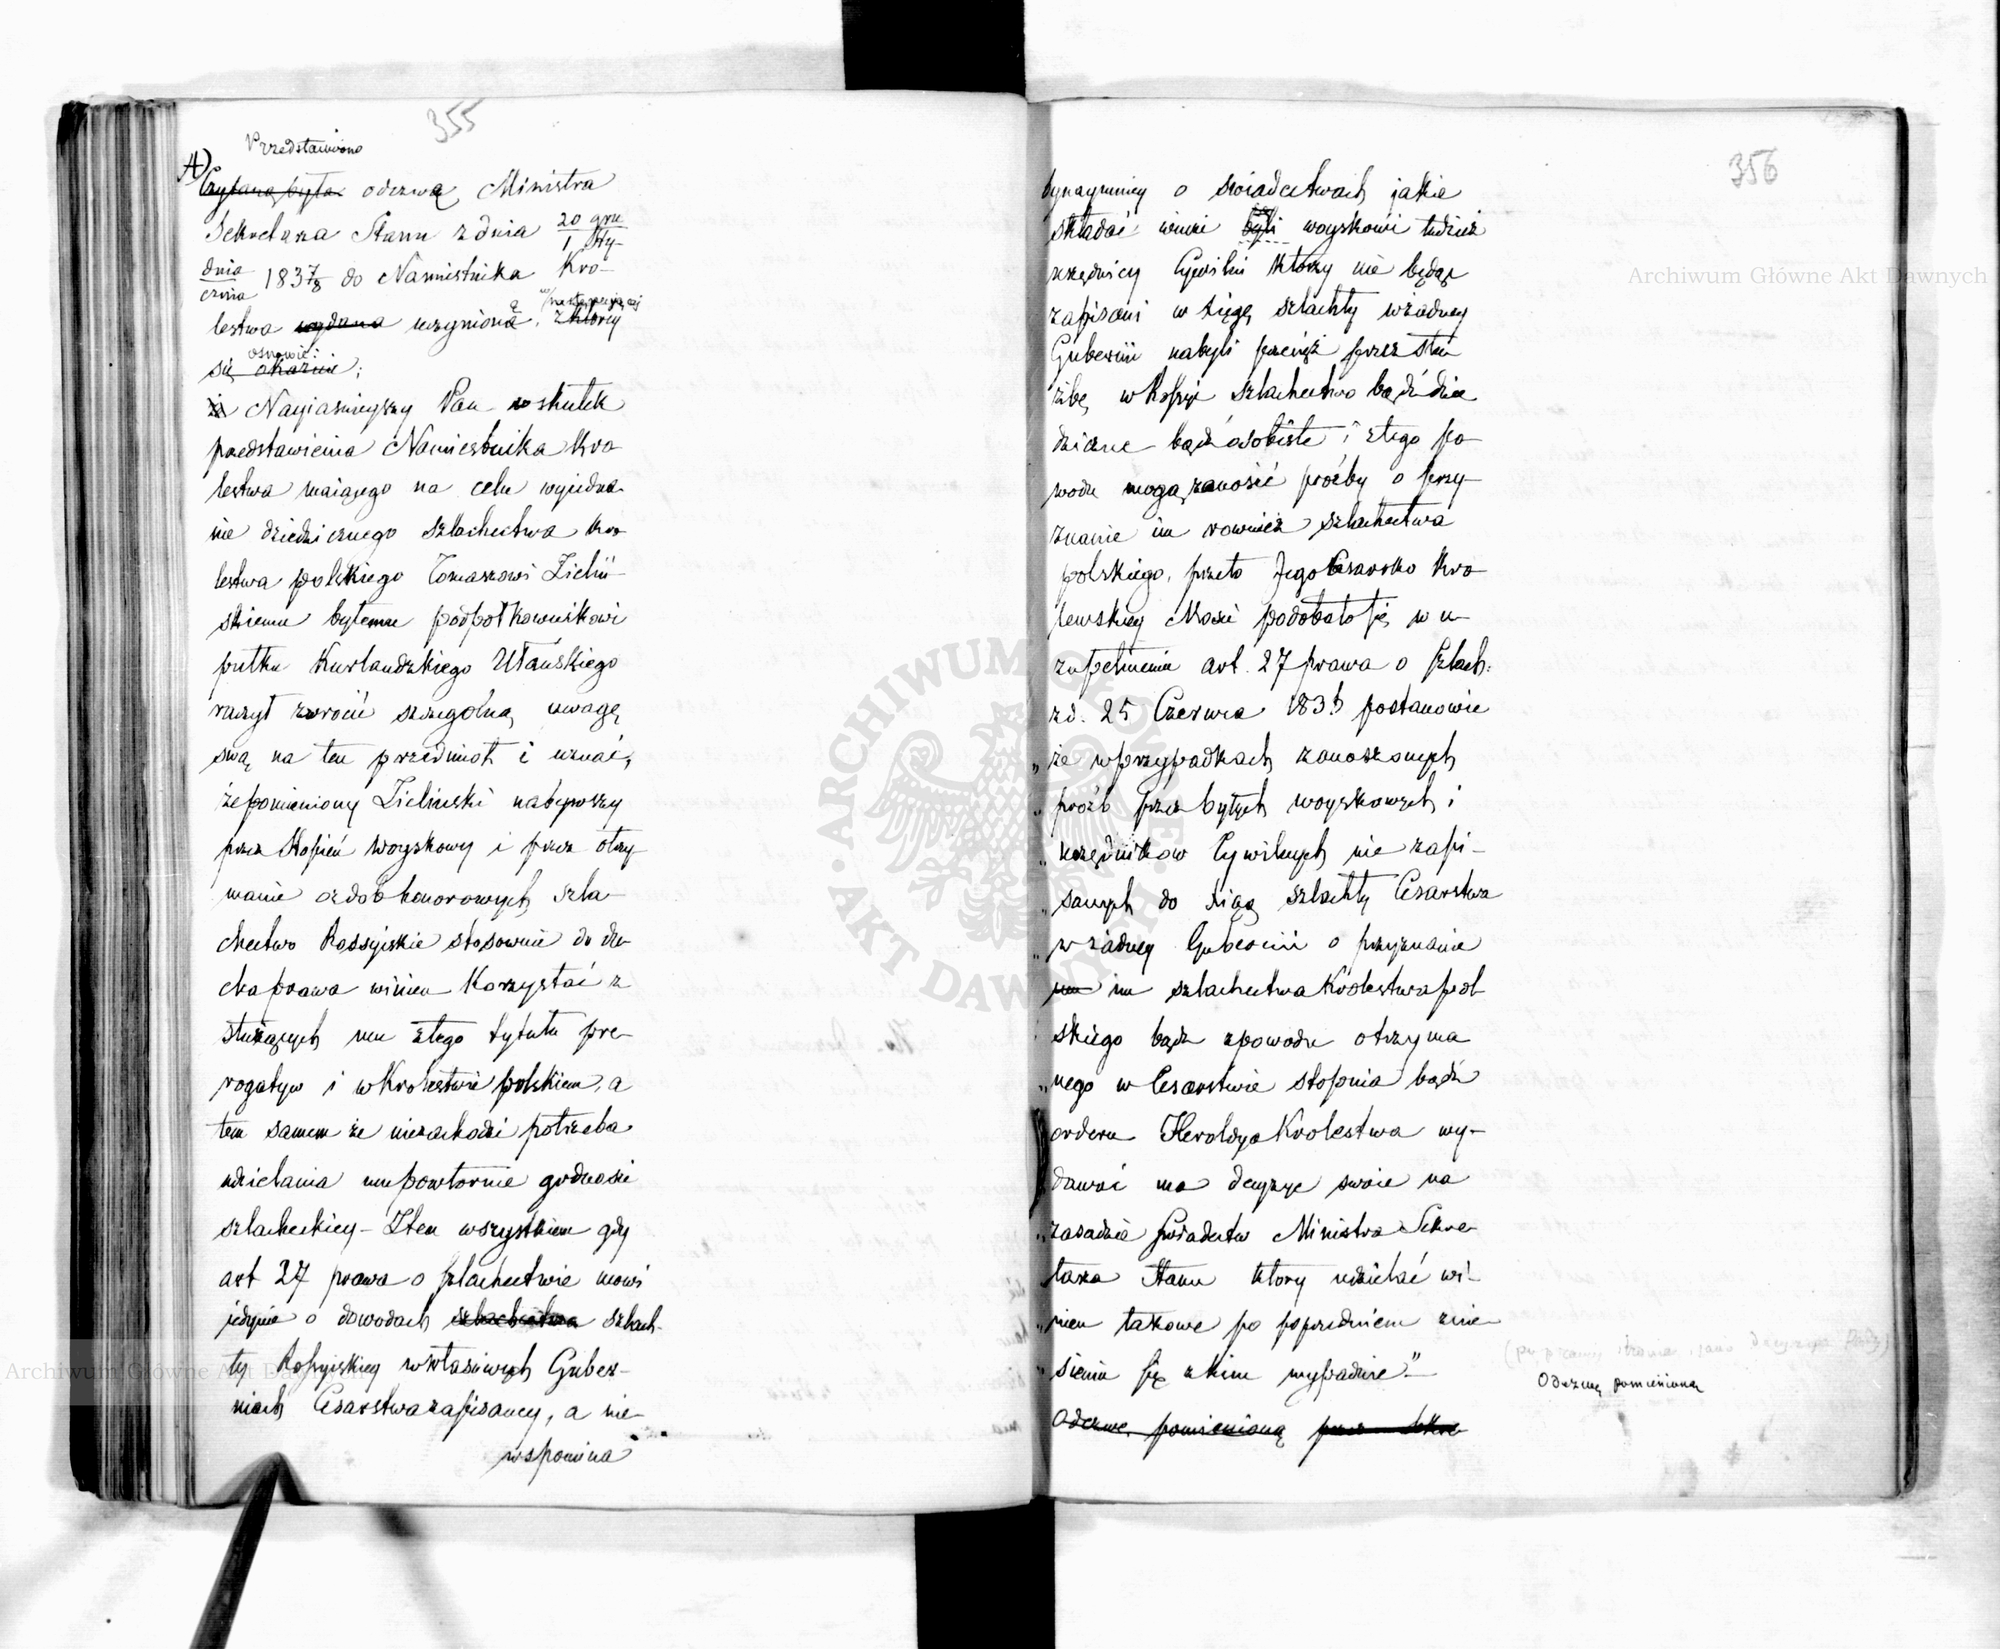 355
Przedstawiono
A) Czytaną była odezwą Ministra
Sekretarza Stanu z dnia 20 gru / 1 sty-
dnia / cznia 1837/8 do Namiestnika Kro-
lestwa wydana uczynioną, w następującej z ktorey
osnowie:
się okazuie;
iż Nayiaśnieyszy Pan w skutek
przedstawienia Namiestnika Kro-
lestwa maiącego na celu wyiedna-
nie dziedzicznego szlachectwa Kro-
lestwa polskiego Tomaszowi Zieliń-
skiemu byłemu podpółkownikowi
pułku Kurlandzkiego Ułańskiego
raczył zwrocić szczegolną uwagę
swą na ten przedmiot i uznać,
że pomieniony Zielinski nabywszy
przez stopień woyskowy i przez otrzy-
manie ozdob honorowych szla-
chectwo Rossyiskie stosownie do du-
cha prawa winien korzystać z
służących mu z tego tytułu pre-
rogatyw i w Krolestwie polskiem, a
tem samem że niezachodzi potrzeba
udzielania mu powtornie godnosci
szlacheckiey – Z tem wszystkiem gdy
art 27 prawa o szlachectwie mowi
iedynie o dowodach szlachectwa szlach-
ty Rossyiskiey w właściwych Guber-
niach Cesarstwa zapisaney, a nie-
wspomina
356
bynaymniey o swiadectwach jakie
składać winni byli woyskowi tudzież
urzędnicy Cywilni ktorzy nie będąc
zapisani w xięgę szlachty w żadney
Gubernii nabyli przecięż przez słu-
żbę w Rossyi szlachectwo bądź dzie-
dziczne bądź osobiste i z tego po-
wodu mogą zanosić proźby o przy-
znanie im rownież szlachectwa
polskiego, przeto Jego Cesarsko Kro-
lewskiey Mosci podobało się w u-
zupełnieniu art. 27 prawa o szlach:
z d. 25 Czerwca 1836 postanowić
„że w przypadkach zanoszonych
„proźb przez byłych woyskowych i
„urzędnikow Cywilnych nie zapi-
„sanych do xiąg szlachty Cesarstwa
„w żadney Gubernii o przyznanie
im im szlachectwa Krolestwa pol-
skiego bądź z powodu otrzyma-
„nego w Cesarstwie stopnia bądź
orderu Heroldya Krolestwa wy-
dawać ma decyzye swoie na
„zasadzie swiadectw Ministra Sekre-
tarza Stanu ktory udzielać wi-
„nien takowe po poprzedniem znie-
„sieniu się z kim wypadnie”–
Odezwę pomienioną
Odezwę pomienioną przez Sekre-
Archiwum Główne Akt Dawnych
Archiwum Główne Akt Dawnych
ARCHIWUM GŁÓWNE · AKT DAWNYCH ·